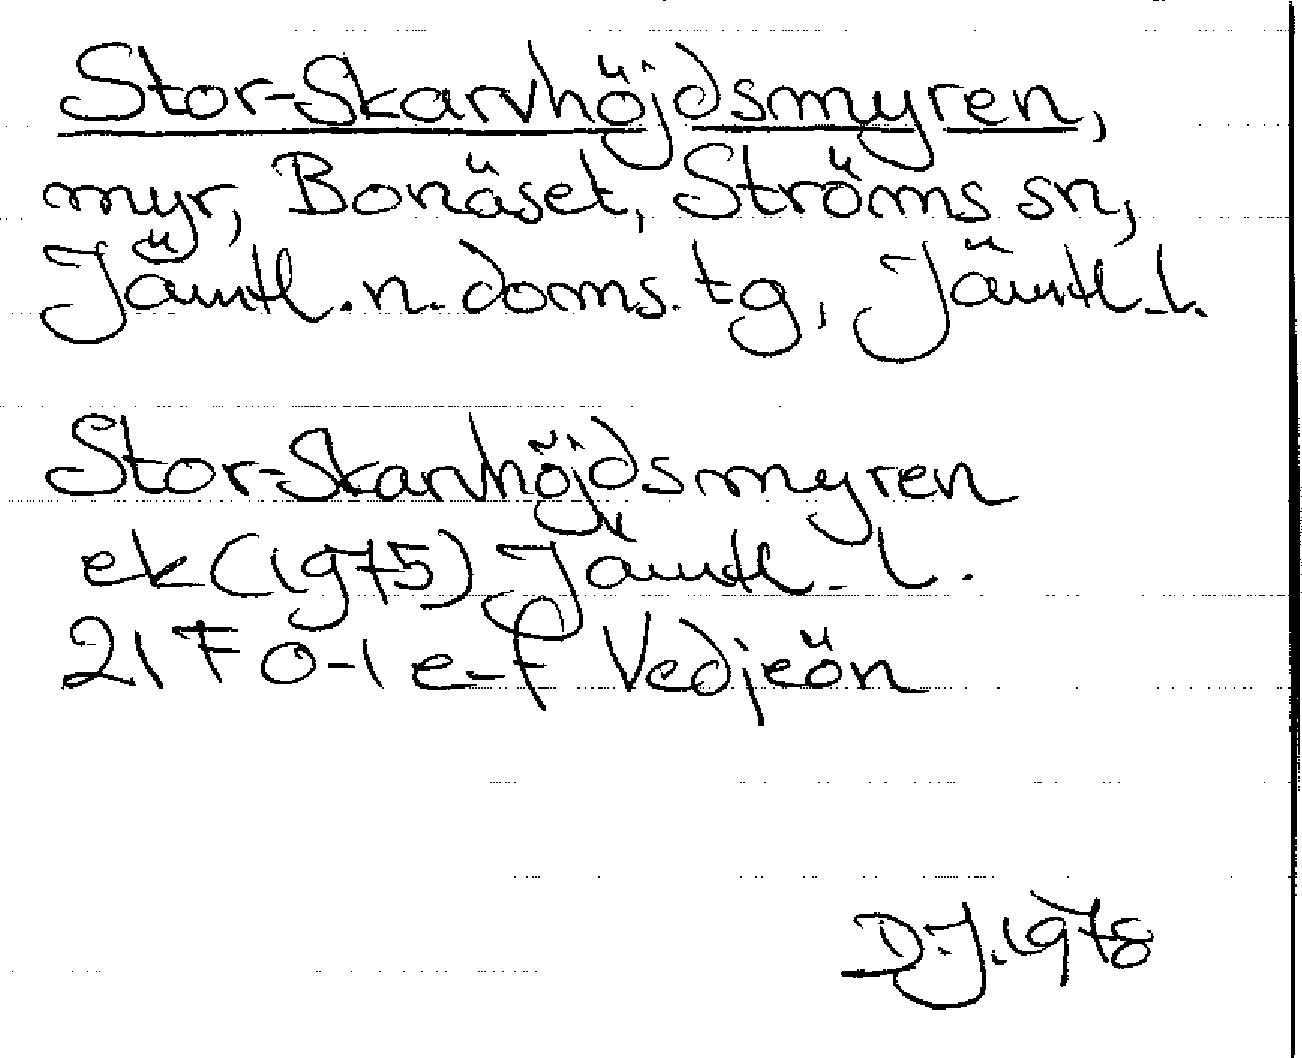 Stor-Skarvhöjdsmyren,
myr, Bonäset, Ströms sn,
Jämtl. n. doms. tg, Jämtl. l.
Stor-Skarvhöjdsmyren
ek (1975) Jämtl. l.
21F 0-1 e-f Vedjeön
D.J. 1978